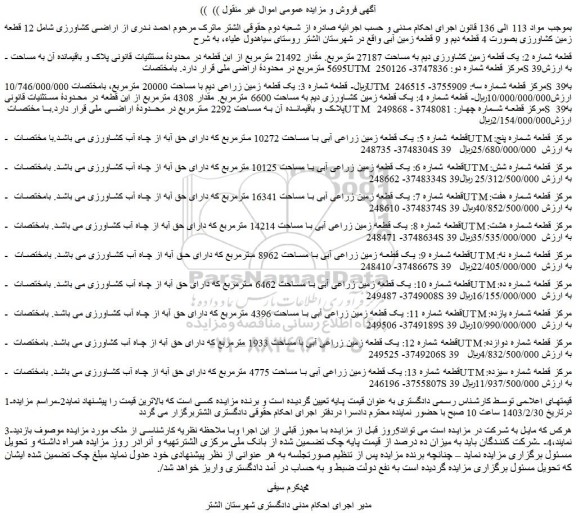 آگهی فروش و مزایده عمومی اموال غیر منقول )) ))
بموجب مواد 113 الی 136 قانون اجرای احکام مـدنی و حسب اجرائیه صادره از شـعبه دوم حقوقی الشتر ماترک مرحوم احمـد نـدری از اراضی کشاورزی شامل 12 قطعه
زمین کشاورزی بصورت 4 قطعه دیم و 9 قطعه زمین آبی واقع در شهرستان الشتر روستای سیاهدول علیاء، به شرح
قطعه شماره 2: یک قطعه زمین کشاورزی دیم به مساحت 27187 مترمربع. مقدار 21492 مترمربع از این قطعه در محدودۀ مستثنیات قانونی پلاک و باقیمانده آن به مساحت ـ
به ارزش39 Sمرکز قطعه شماره دو: 3747836- 250126 5695UTM مترمربع در محدودۀ اراضی ملی قرار دارد. بامختصات
به39 Sمرکز قطعه شماره سه: 3755909- 246515 UTMریال- قطعه شماره 3: یک قطعه زمین زراعی دیم با مساحت 20000 مترمربع، بامختصات 10/746/000/000
ارزش10/000/000/000ریال- قطعه شماره 4: یـک قطعـه زمین کشـاورزی دیم به مساحت 6600 مترمربع. مقـدار 4308 مترمربع از این قطعه در محـدودۀ مسـتثنیات قانونی
به39 Sمرکز قطعـه شـماره چهـار: 3748081- 249868 UTMپلاـک و باقیمانـده آن بـه مسـاحت 2292 مترمربع در محـدودۀ اراضـی ملی قرار دارد.بـا مختصـات
ارزش2/154/000/000ریال
مرکز قطعه شماره پنج: UTMقطعه شماره 5: یک قطعه زمین زراعی آبی با مساحت 10272 مترمربع که دارای حق آبه از چـاه آب کشاورزی می باشد.با مختصات ـ
به ارزش 25/680/000/000ریال 39 3748304S- 248735
مرکز قطعه شماره شش: UTMقطعه شماره 6: یک قطعه زمین زراعی آبی بـا مساحت 10125 مترمربع که دارای حق آبه از چاه آب کشاورزی می باشد. بامختصات ـ
به ارزش 25/312/500/000 ریال 39 3748334S- 248662
مرکز قطعه شماره هفت: UTMقطعه شماره 7: یک قطعه زمین زراعی آبی با مساحت 16341 مترمربع که دارای حق آبه از چاه آب کشاورزی می باشد. بامختصات ـ
به ارزش 40/852/500/000ریال 39 3748374S- 248610
مرکز قطعه شماره هشت: UTMقطعه شماره 8: یک قطعه زمین زراعی آبی با مساحت 14214 مترمربع که دارای حق آبه از چاه آب کشاورزی می باشد. بامختصات ـ
به ارزش 35/535/000/000ریال 39 3748634S- 248471
مرکز قطعه شماره نه: UTMقطعه شماره 9: یک قطعه زمین زراعی آبی با مساحت 8962 مترمربع که دارای حق آبه از چاه آب کشاورزی می باشد. بامختصات ـ
به ارزش 22/405/000/000ریال 39 3748667S- 248410
مرکز قطعه شماره ده: UTMقطعه شماره 10: یک قطعه زمین زراعی آبی با مساحت 6462 مترمربع که دارای حق آبه از چاه آب کشاورزی می باشد. بامختصات ـ
به ارزش 16/155/000/000ریال 39 3749008S- 249487
مرکز قطعه شماره یازده: UTMقطعه شماره 11: یک قطعه زمین زراعی آبی با مساحت 4396 مترمربع که دارای حق آبه از چاه آب کشاورزی می باشد. بامختصات ـ
به ارزش 10/990/000/000ریال 39 3749189S- 249506
مرکز قطعه شماره دوازده: UTMقطعه شماره 12: یک قطعه زمین زراعی آبی با مساحت 1933 مترمربع که دارای حق آبه از چاه آب کشاورزی می باشد. بامختصات ـ
به ارزش 4/832/500/000ریال 39 3749206S- 249525
مرکز قطعه شماره سیزده: UTMقطعه شماره 13: یک قطعه زمین زراعی آبی با مساحت 4775 مترمربع که دارای حق آبه از چاه آب کشاورزی می باشد. بامختصات ـ
به ارزش 11/937/500/000ریال 39 3755807S- 246196
قیمتهـای اعلامی توسط کارشناس رسمی دادگستری به عنوان قیمت پـایه تعیین گردیـده است و برنـده مزایـده کسی است که بالاترین قیمت را پیشـنهاد نماید2-مراسم مزایده-1
درتاریخ 1403/2/30 ساعت 10 صبح با حضور نماینده محترم دادسرا دردفتر اجرای احکام حقوقی دادگستری الشتربرگزار می گردد
هرکس که مایـل به شـرکت در مزایـده است می توانـد5روز قبـل از مزایـده بـا مجوز قبلی از این اجرا وبـا ملاحظه نظریه کارشناسـی از ملک مورد مزایـده موصوف بازدیـد-3
نمایند،4- ـشرکت کننـدگان بایـد به میزان ده درصـد از قیمت پایه چک تضـمین شده از بانک ملی مرکزی الشترتهیه و آنرادر روز مزایده همراه داشـته و تحویل
مسئول برگزاری مزایـده نمایـد – چنـانچه برنده مزایده پس از تنظیم صورتجلسه به هر عنوانی از نظر پیشنهادی خود عدول نماید مبلغ چک تضمین شده ایشان
که تحویل مسئول برگزاری مزایده گردیده است به نفع دولت ضبط و به حساب در آمد دادگستری واریز خواهد شد/.
محمدکرم سیفی
مدیر اجرای احکام مدنی دادگستری شهرستان الشتر
ParsNamadData